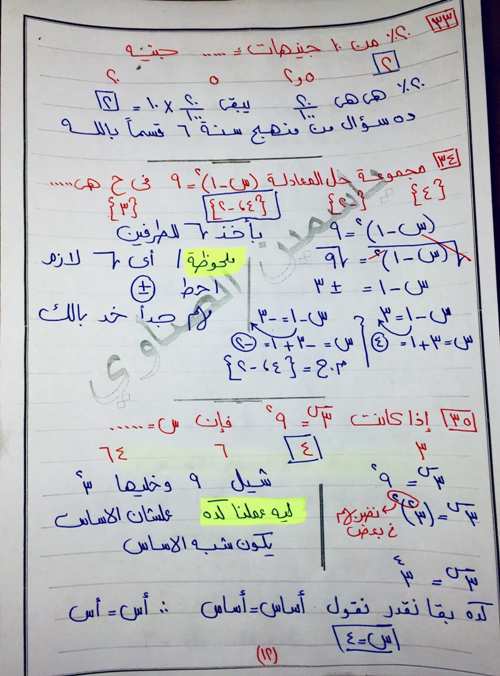 ٣٣ ٢٠٪ من ١٠ جنيهات = ..... جنيه
٢ ٢,٥ ٥ ٢٠
٢٠٪ هى هى ٢٠/١٠٠ يبقى ٢٠/١٠٠ × ١٠ = ٢
ده سؤال من منهج سنة ٦ قسماً بالله
٣٤ مجموعة حل المعادلة (س-١)² = ٩ فى ح هى .....
{٤} {٢} {-٢،٤} {٣}
(س-١)² = ٩ بأخذ √ للطرفين
√(س-١)² = √٩ ملحوظة / أى √ لازم
س-١ = ± ٣ احط ±
س-١=٣ س-١=-٣ مهم جداً خد بالك
س=٣+١=٤ س=-٣+١=-٢
م.ح = {-٢،٤}
٣٥ إذا كانت ٣^س = ٩² فإن س = ......
٣ ٤ ٦ ٦٤
٣^س = ٩² شيل ٩ وخليها ٣²
٣^س = (٣²)² نضربهم فى بعض ليه عملنا كده علشان الاساس
يكون شبه الاساس
٣^س = ٣^٤
كده بقا نقدر نقول أساس = أساس ∴ أس = أس
س = ٤
(١٢)
ياسمين الصاوي